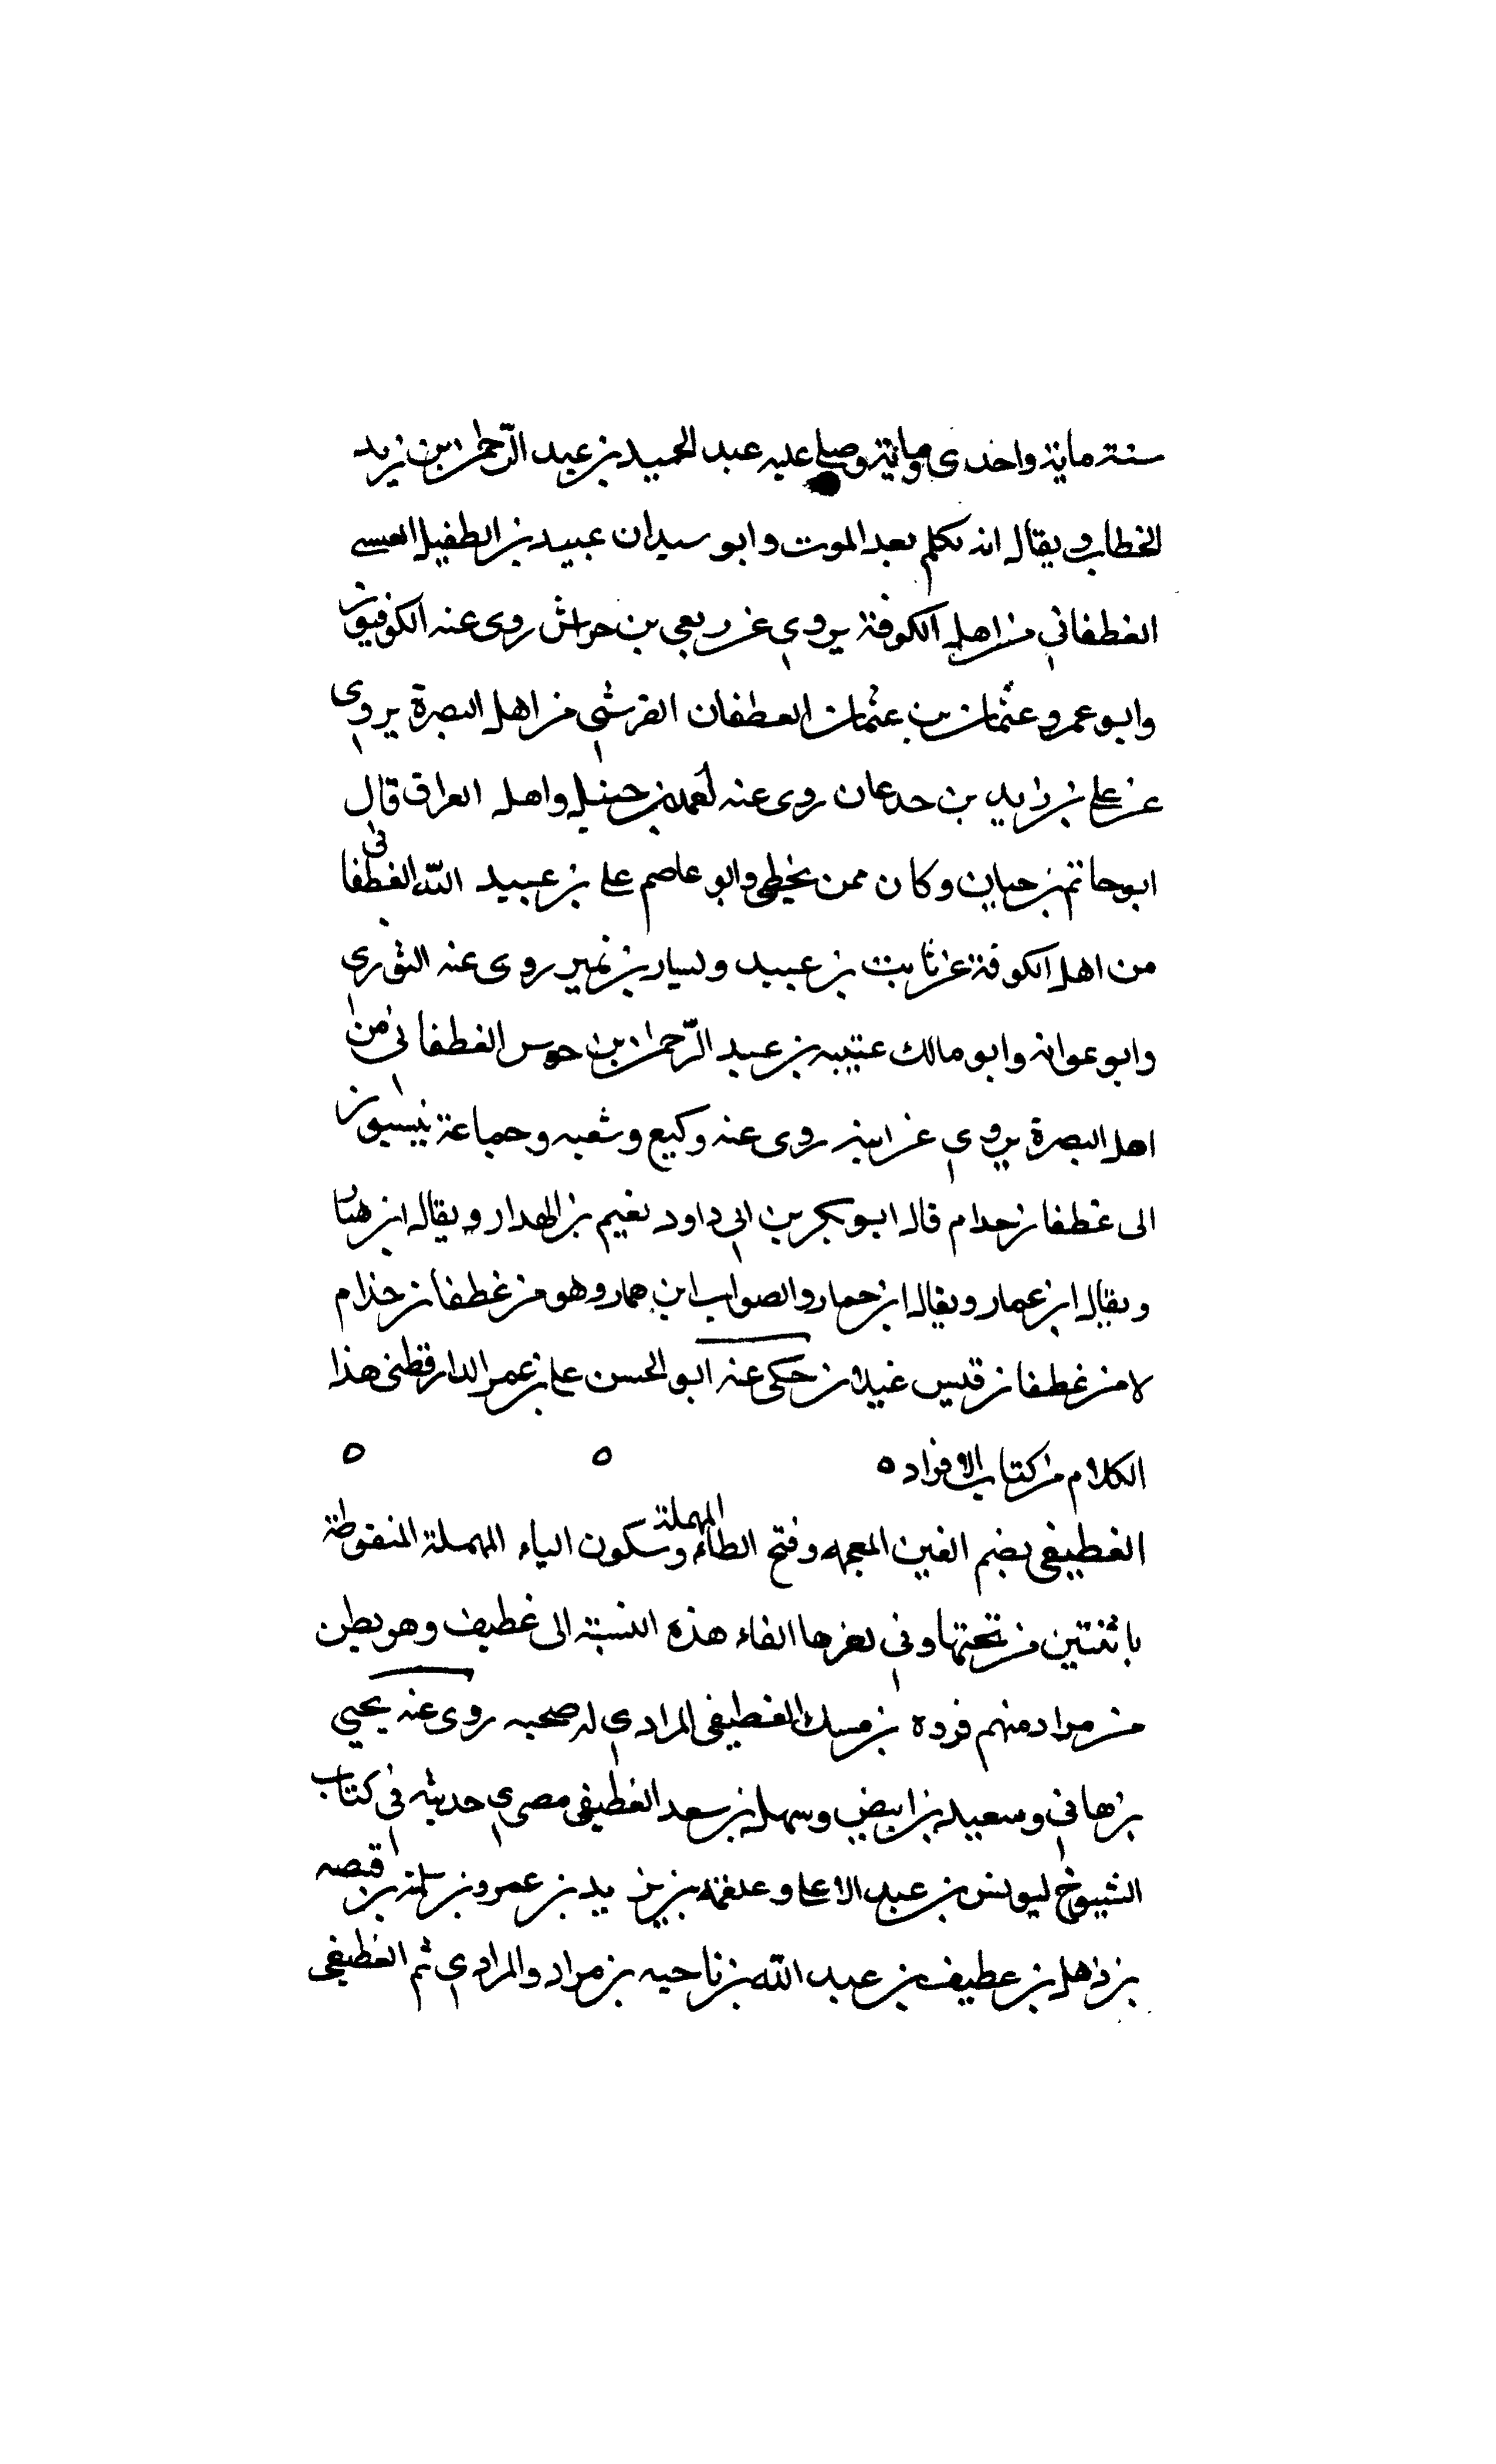 سنة ماية واحدى وماية وصلى عليه عبد الحميد بن عبد الرّحمن بن زيد
الخطاب ويقال انه تكلم بعد الموت وابو سيدان عبيد بن الطفيل العبسي
الغطفاني من اهل الكوفة يروي عن ربعي بن حراش روى عنه الكوفيون
وابو عمرو عثمان بن عثمان الغطفان القرشي من اهل البصرة يروي
عن علي بن زايد بن جدعان روى عنه احمد بن حنبل واهل العراق قال
ابو حاتم بن حبان وكان ممن يخطي وابو عاصم علي بن عبيد الله الغطفاني
من اهل الكوفة عن ثابت بن عبيد ويسار بن نمير روى عنه الثوري
وابو عوانه وابو مالك عتيبه بن عبد الرّحمن بن جوس الغطفاني من
اهل البصرة يروي عن ابيه روى عنه وكيع وشعبه وجماعة ينسبون
الى غطفان جدام قال ابو بكر بن ابي داود نعيم بن الهدار ويقال ابن هبار
ويقال ابن عمار ويقال ابن حمار والصواب ابن همار وهو من غطفان جذام
لا من غطفان قيس غيلان حكى عنه ابو الحسن علي بن عمر الدارقطني هذا
الكلام من كتاب الافراد ٥ ٥ ٥
الغطيفي بضم الغين المعجمه وفتح الطاء المهملة وسكون الياء المهملة المنقوطة
باثنتين من تحتها وفي اخرها الفاء هذه النسبة الى غطيف وهو بطن
من مراد منهم فروه بن مسيك الغطيفي المرادي له صحبه روى عنه يحيي
بن هاني وسعيد بن ابيض وسهل بن سعد الغطيفي مصري حديثه في كتاب
الشيوخ ليونس بن عبد الاعلي وعلقمه بن يزيد بن عمرو بن سلمة بن قبصه
بن ذاهل بن عطيف بن عبد الله بن ناجيه بن مراد والمرادي ثم الغطيفي